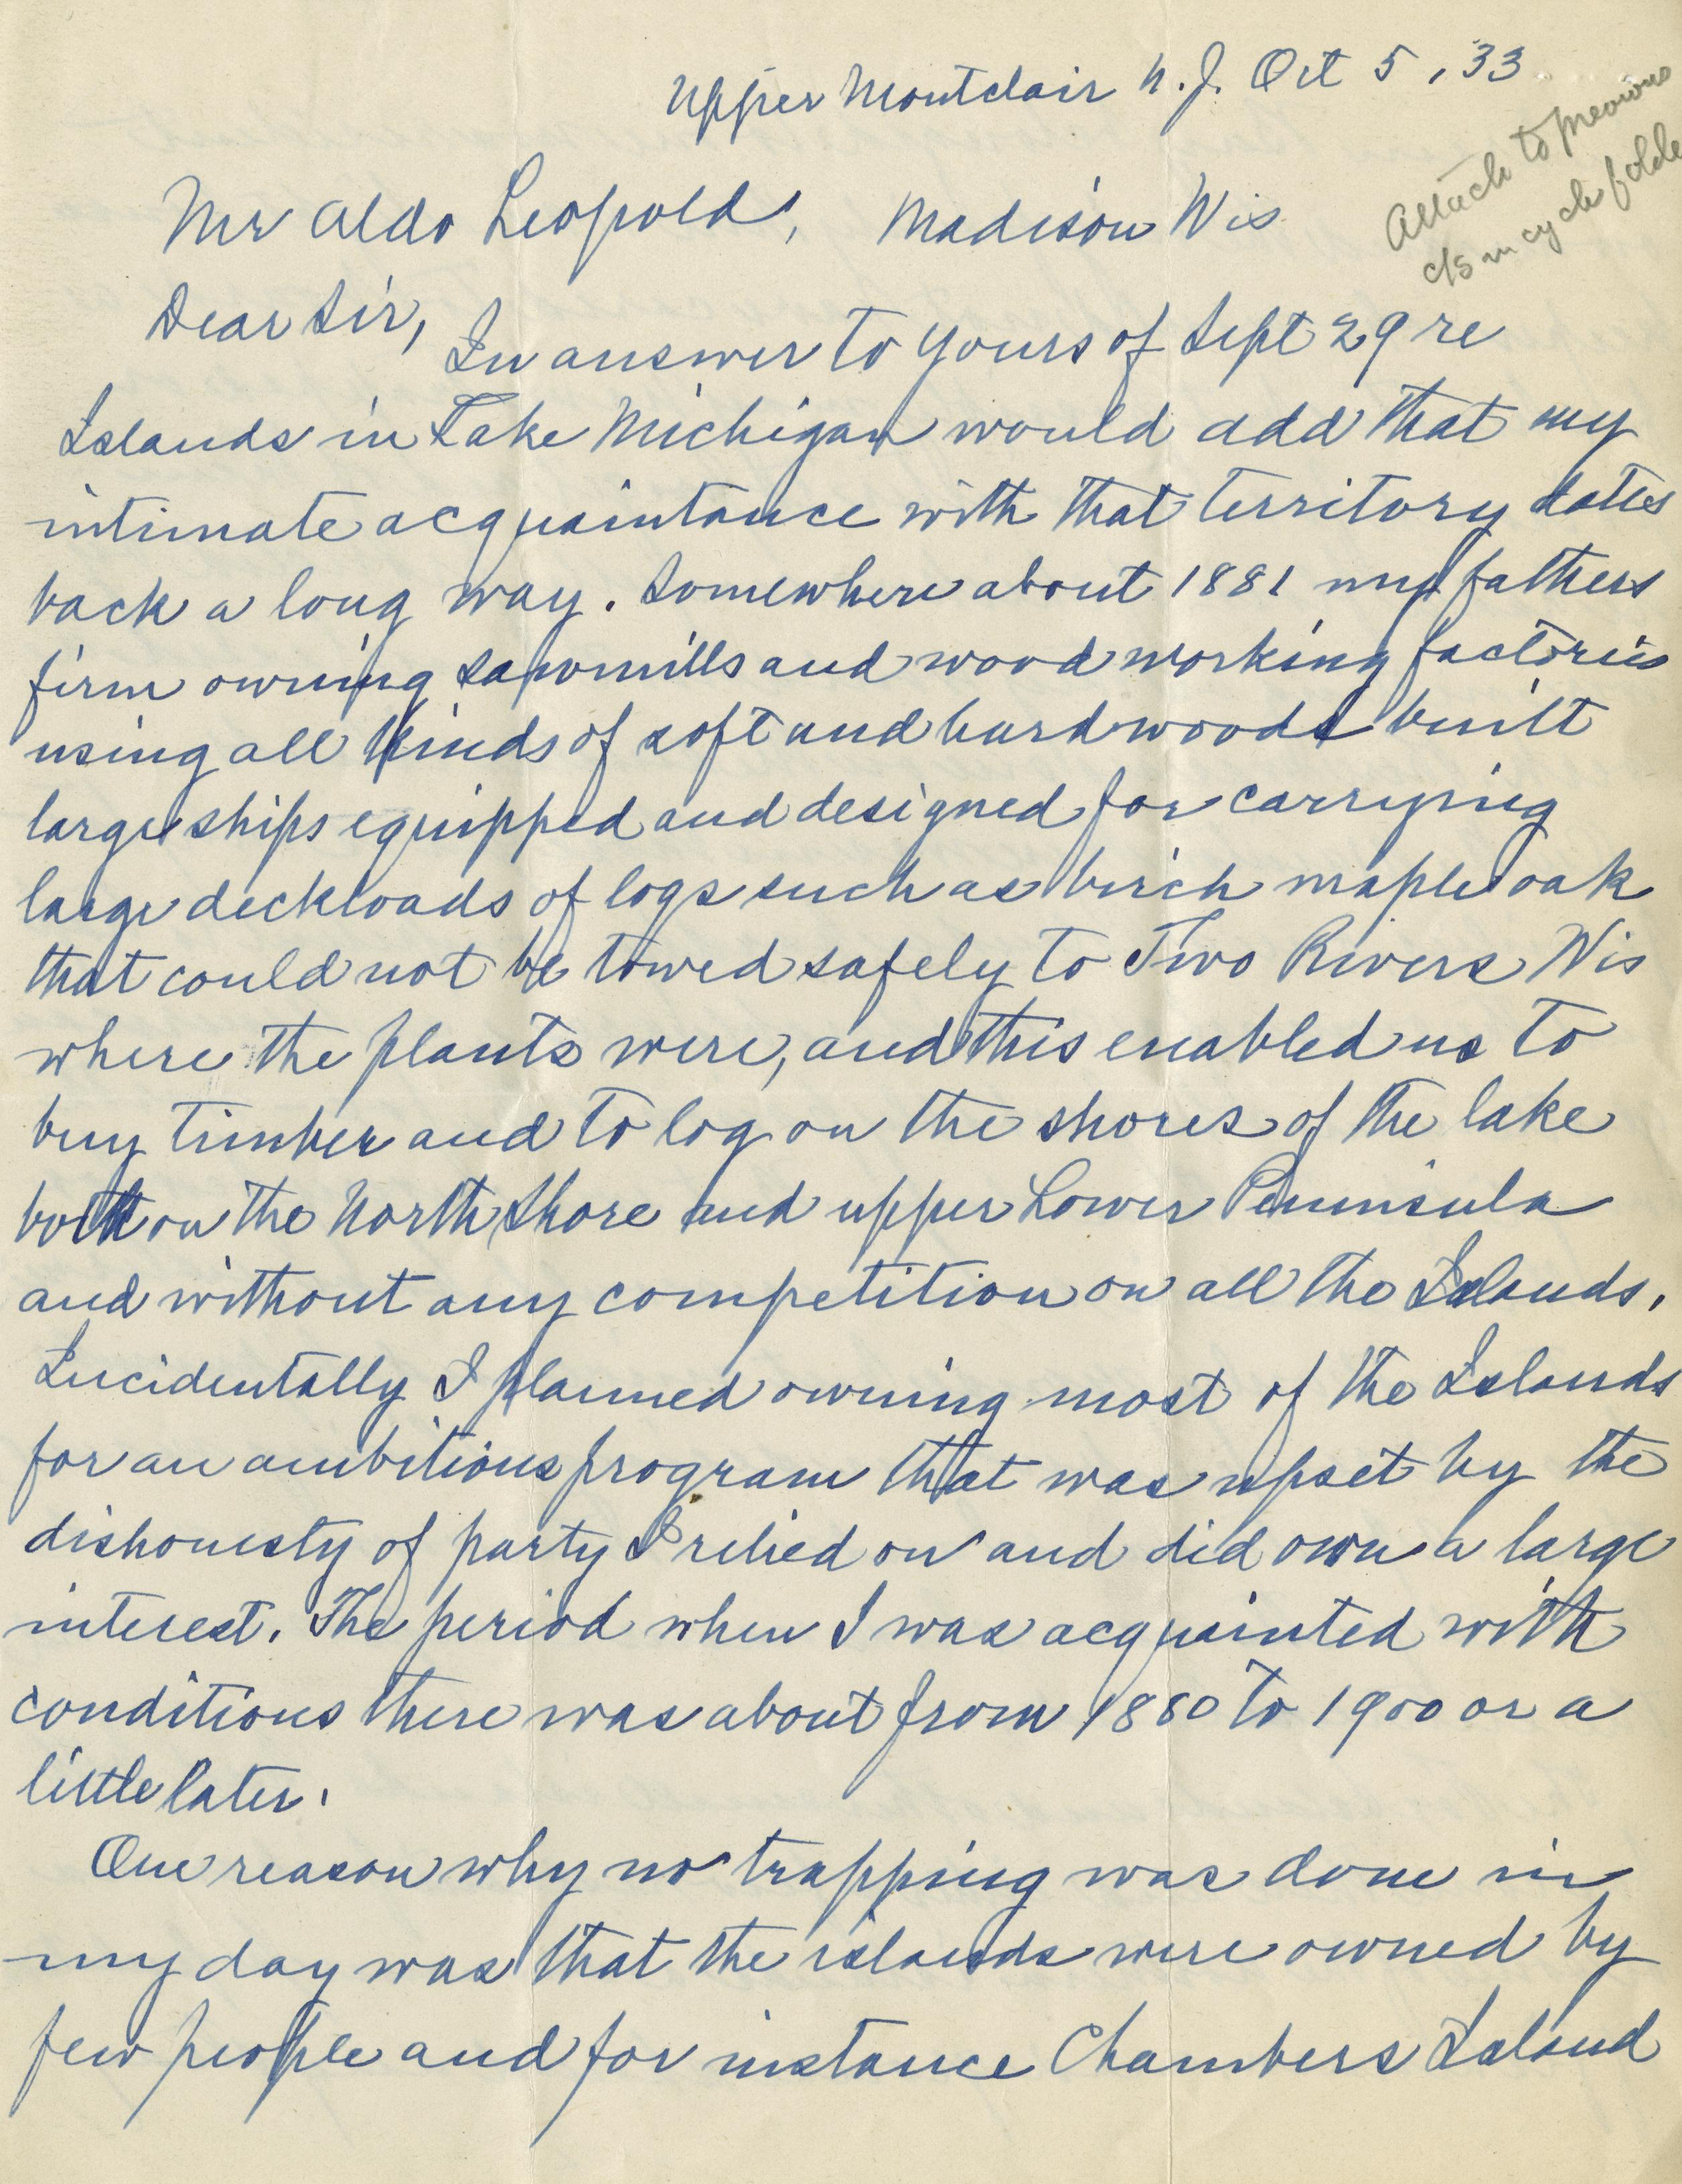 Upper Montclair N.J. Oct 5, 33
Attach to previous
c/s in cycle folder
Mr Aldo Leopold, Madison Wis
Dear Sir,
In answer to yours of Sept 29 re
Islands in Lake Michigan would add that my
intimate acquaintance with that territory dates
back a long way. Somewhere about 1881 my fathers
firm owning sawmills and wood working factories
using all kinds of soft and hardwoods built
large ships equipped and designed for carrying
large deckloads of logs such as birch maple oak
that could not be towed safely to Two Rivers Wis
where the plants were, and this enabled us to
buy timber and to log on the shores of the lake
both on the North Shore and upper Lower Peninsula
and without any competition on all the Islands.
Incidentally I planned owning most of the Islands
for an ambitious program that was upset by the
dishonesty of party I relied on and did own a large
interest. The period when I was acquainted with
conditions there was about from 1880 to 1900 or a
little later.
One reason why no trapping was done in
my day was that the islands were owned by
few people and for instance Chambers Island